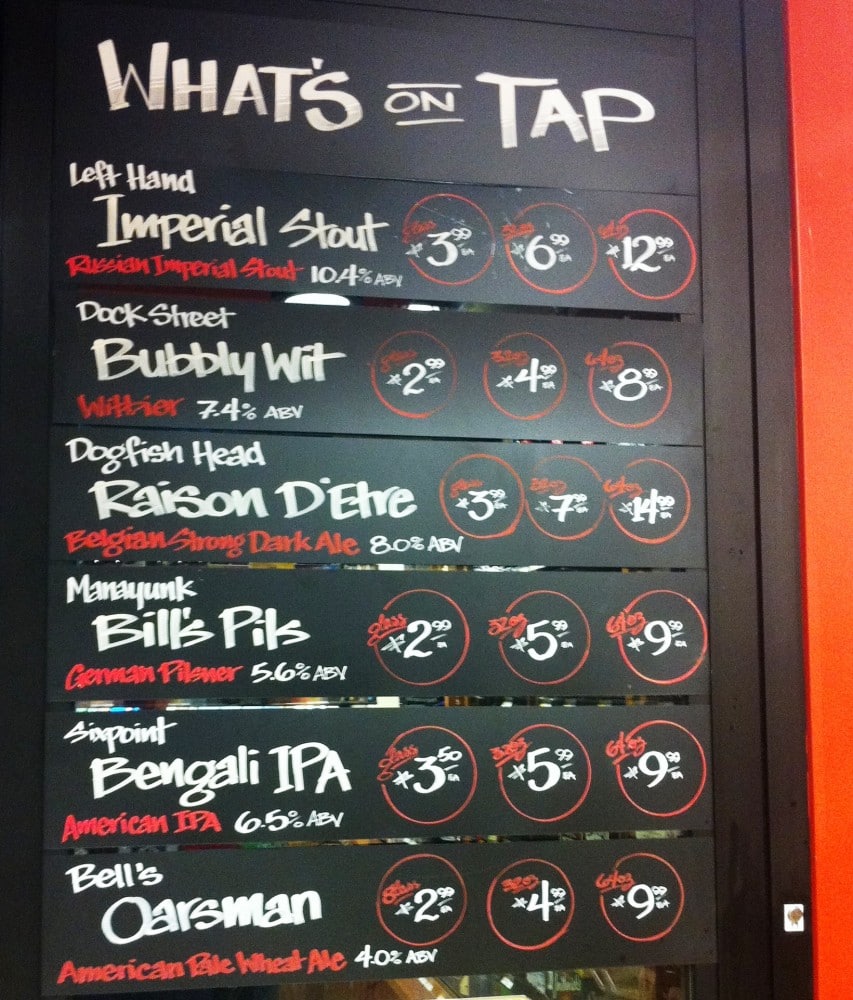 WHAT'S ON TAP
Left Hand
Imperial Stout
Russian Imperial Stout 10.4% ABV
glass 3.99 EA
32oz 6.99 EA
64oz 12.99 EA
Dock Street
Bubbly Wit
Witbier 7.4% ABV
glass 2.99 EA
32oz 4.99 EA
64oz 8.99 EA
Dogfish Head
Raison D'Etre
Belgian Strong Dark Ale 8.0% ABV
glass 3.99 EA
32oz 7.99 EA
64oz 14.99 EA
Manayunk
Bill's Pils
German Pilsner 5.6% ABV
glass 2.99 EA
32oz 5.99 EA
64oz 9.99 EA
Sixpoint
Bengali IPA
American IPA 6.5% ABV
glass 3.50 EA
32oz 5.99 EA
64oz 9.99 EA
Bell's
Oarsman
American Pale Wheat Ale 4.0% ABV
glass 2.99 EA
32oz 4.99 EA
64oz 9.99 EA